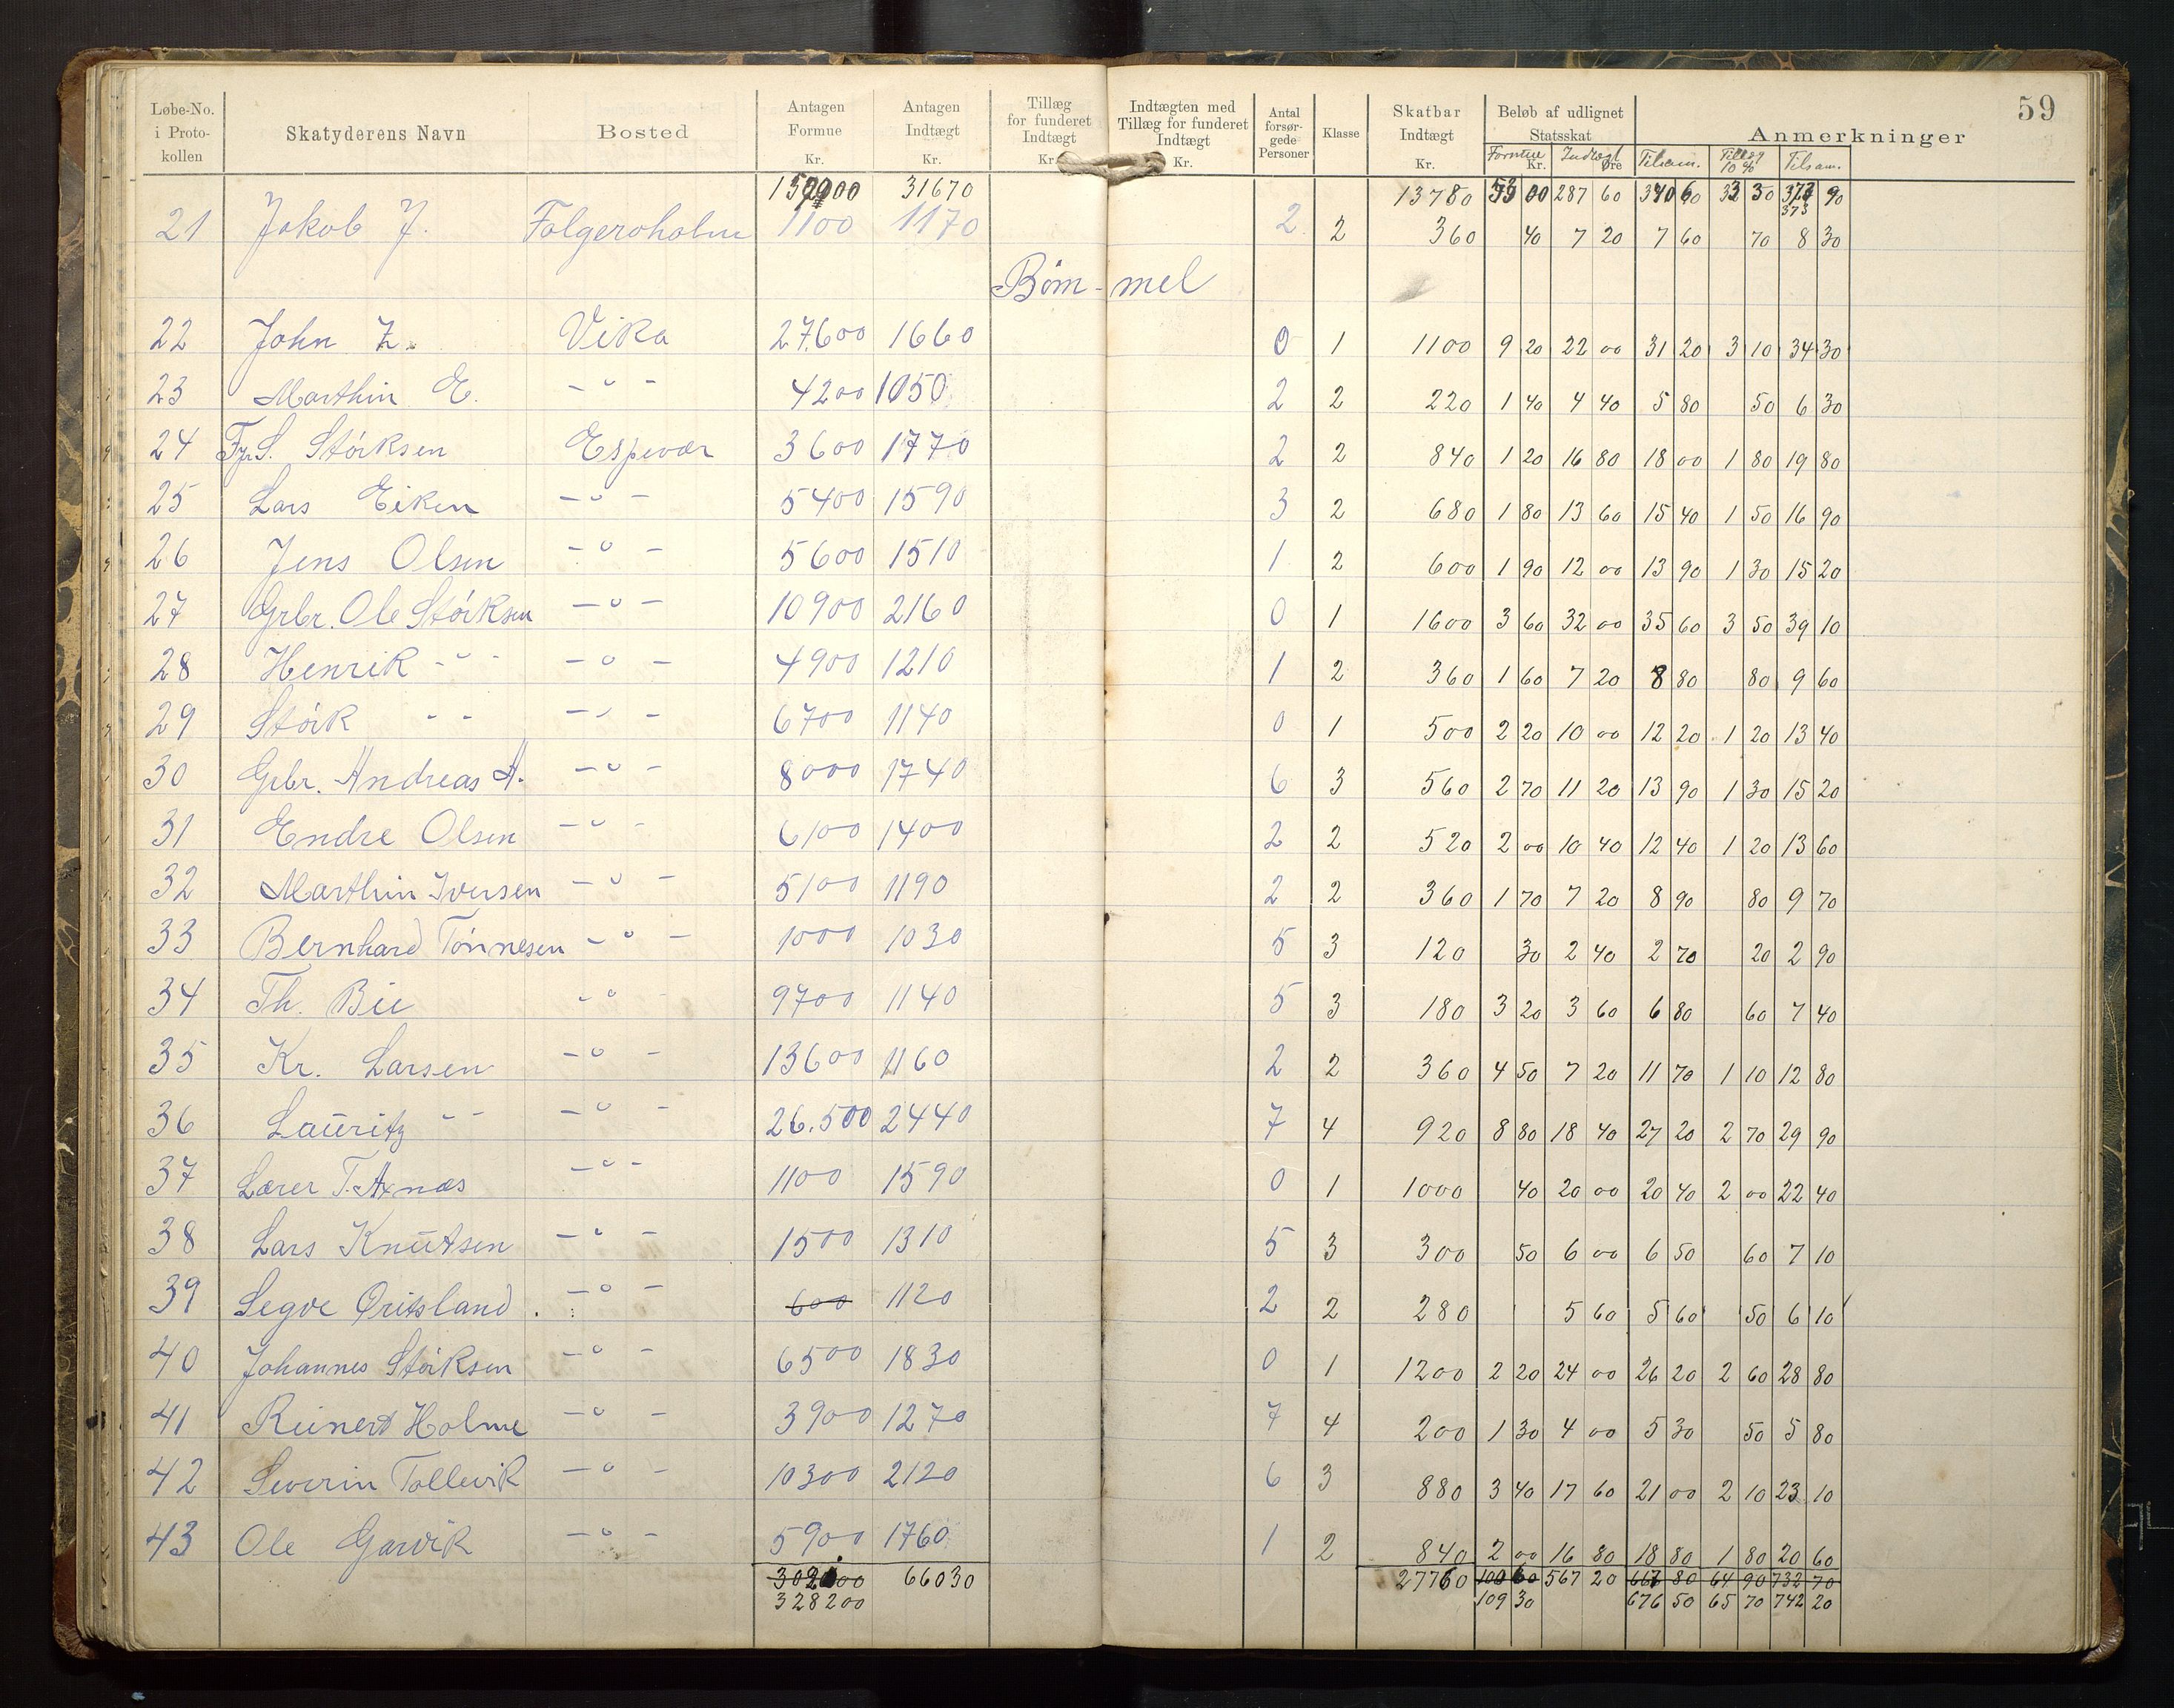 59
Løbe-No. i Proto- kollen | Skatyderens Navn | Bosted | Antagen Formue Kr. | Antagen Indtægt Kr. | Tillæg for funderet Indtægt Kr. | Indtægten med Tillæg for funderet Indtægt Kr. | Antal forsør- gede Personer | Klasse | Skatbar Indtægt Kr. | Beløb af udlignet Statsskat Kr. Øre | Anmerkninger
Formue | Indtægt | Tilsam. | Tillæg 10 % | Tilsam.
31670 | 13780 | 287 60 | 340 60 | 33 30 | 373 90
21 Jakob J. Folgeroholm 1100 1170 2 2 360 40 7 20 7 60 70 8 30
Bøm- mel
22 John Z. Vika 27600 1660 0 1 1100 9 20 22 00 31 20 3 10 34 30
23 Marthin E. - " - 4200 1050 2 2 220 1 40 4 40 5 80 50 6 30
24 Fyr S. Størksen Espevær 3600 1770 2 2 840 1 20 16 80 18 00 1 80 19 80
25 Lars Eiken - " - 5400 1590 3 2 680 1 80 13 60 15 40 1 50 16 90
26 Jens Olsen - " - 5600 1510 1 2 600 1 90 12 00 13 90 1 30 15 20
27 Grbr. Ole Størksen - " - 10900 2160 0 1 1600 3 60 32 00 35 60 3 50 39 10
28 Henrik - " - - " - 4900 1210 1 2 360 1 60 7 20 8 80 80 9 60
29 Størk - - - " - 6700 1140 0 1 500 2 20 10 00 12 20 1 20 13 40
30 Grbr. Andreas A. - " - 8000 1740 6 3 560 2 70 11 20 13 90 1 30 15 20
31 Endre Olsen - " - 6100 1400 2 2 520 2 00 10 40 12 40 1 20 13 60
32 Marthin Iversen - " - 5100 1190 2 2 360 1 70 7 20 8 90 80 9 70
33 Bernhard Tönnesen - " - 1000 1030 5 3 120 30 2 40 2 70 20 2 90
34 Th. Bie - " - 9700 1140 5 3 180 3 20 3 60 6 80 60 7 40
35 Kr. Larsen - " - 13600 1160 2 2 360 4 50 7 20 11 70 1 10 12 80
36 Lauritz - - - " - 26.500 2440 7 4 920 8 80 18 40 27 20 2 70 29 90
37 Lærer T. Axnæs - " - 1100 1590 0 1 1000 40 20 00 20 40 2 00 22 40
38 Lars Knutsen - " - 1500 1310 5 3 300 50 6 00 6 50 60 7 10
39 Segve Øritsland - " - 600 1120 2 2 280 5 60 5 60 50 6 10
40 Johannes Størksen - " - 6500 1830 0 1 1200 2 20 24 00 26 20 2 60 28 80
41 Reinert Holme - " - 3900 1270 7 4 200 1 30 4 00 5 30 50 5 80
42 Severin Tollevik - " - 10300 2120 6 3 880 3 40 17 60 21 00 2 10 23 10
43 Ole Garvik - " - 5900 1760 1 2 840 2 00 16 80 18 80 1 80 20 60
66030 27760 100 60 567 20 667 80 64 90 732 70
328200 109 30 676 50 65 70 742 20